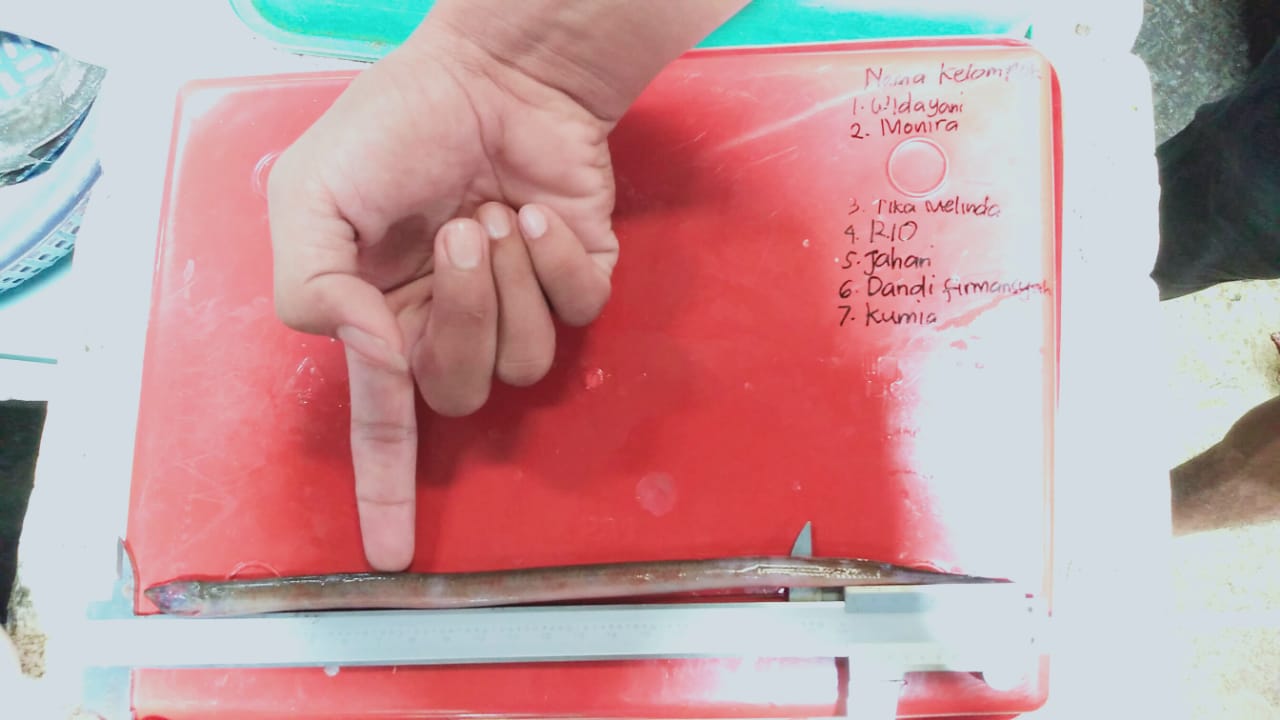 Nama Kelompok
1. Widayani
2. Monira
3. Tika Melinda
4. RIO
5. Jahari
6. Dandi firmansyah
7. Kurnia